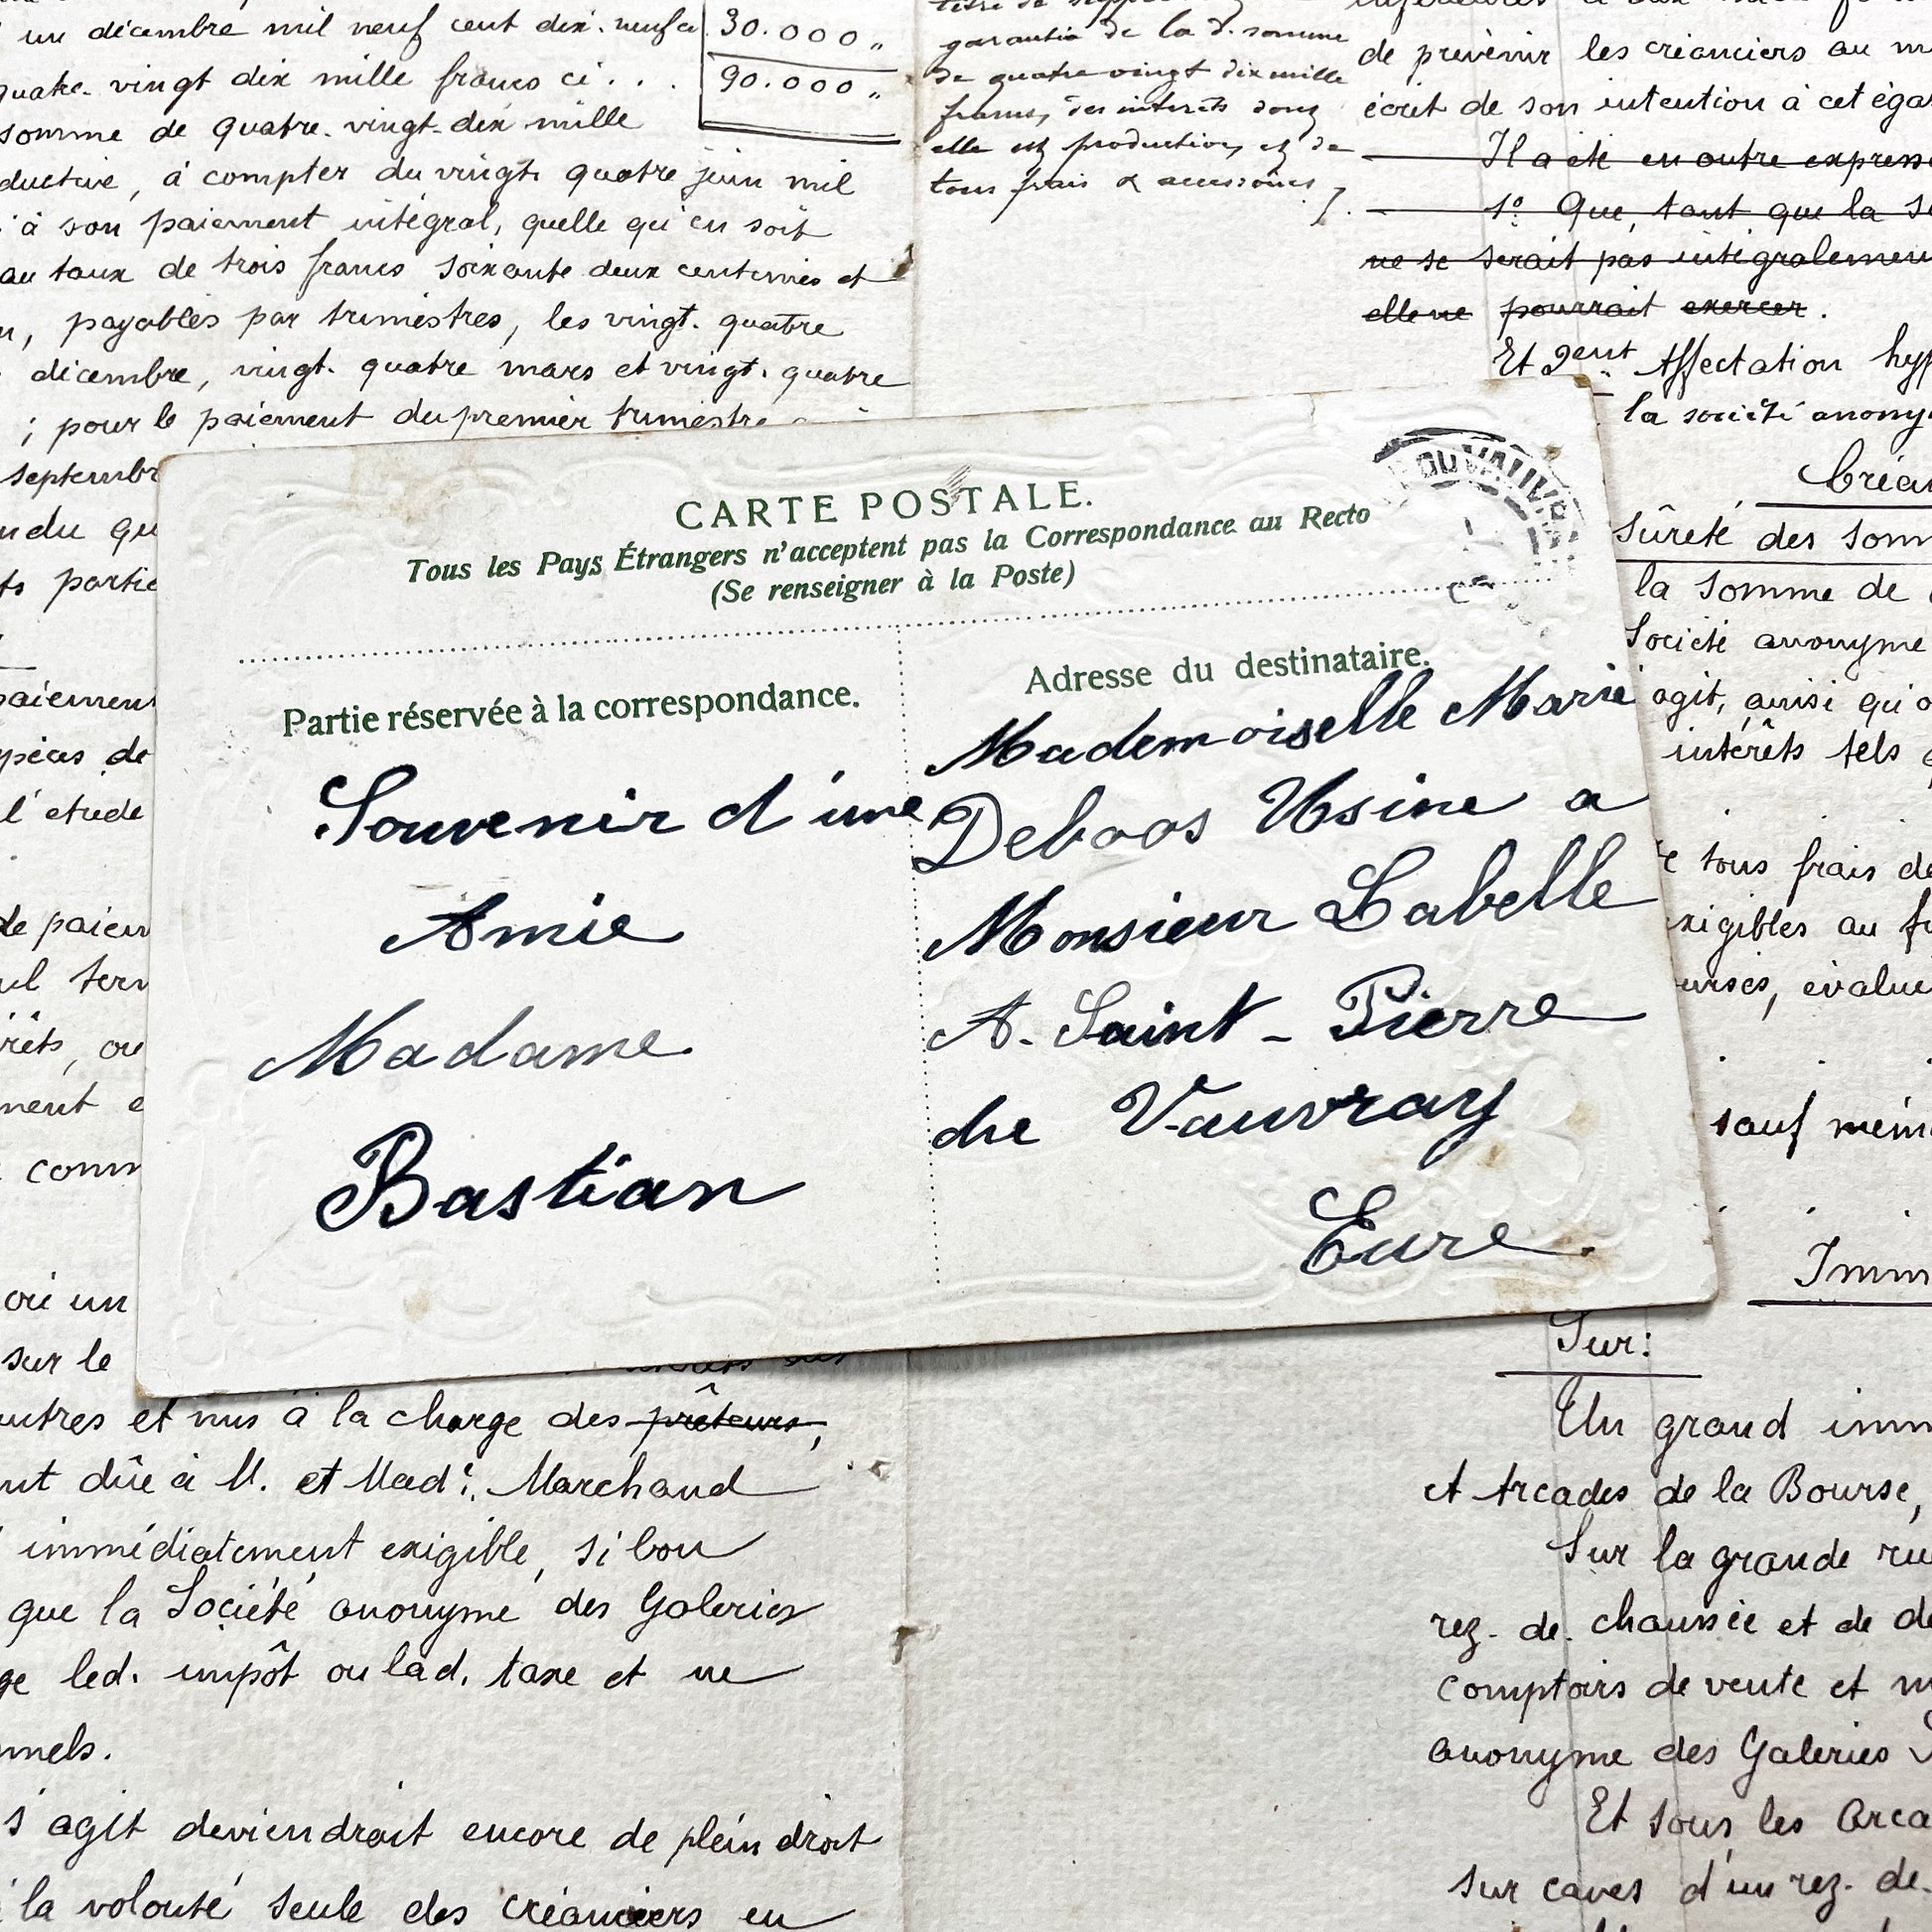 un décembre mil neuf cent dix-neuf ci 30.000 "
quatre-vingt dix mille francs ci . . . 90.000 "
somme de quatre-vingt-dix mille
ductive, à compter du vingt quatre juin mil
à son paiement intégral, quelle qu'en soit
au taux de trois francs soixante deux centimes et
payables par trimestres, les vingt-quatre
décembre, vingt-quatre mars et vingt-quatre
; pour le paiement du premier trimestre
septembr
ndu qu
ts partie
paiement
pèces de
l'étude
de paiem
ul term
rêts, ou
ment e
comm
où un
sur le
garantie de la d. somme
de quatre vingt dix mille
francs, des intérêts dont
elle est productive, et de
tous frais & accessoires /.
de prévenir les créanciers au m
écrit de son intention à cet éga
Il a été en outre express
1º Que, tant que la S
ne se serait pas intégralement
elle ne pourrait exercer.
Et 2ent Affectation hyp
la société anony
Créan
Sûreté des som
la somme de
Société anonyme
agit, ainsi qu'o
intérêts tels
tous frais de
exigibles au f
évalu
sauf mém
Imm
CARTE POSTALE.
Tous les Pays Étrangers n'acceptent pas la Correspondance au Recto
(Se renseigner à la Poste)
Partie réservée à la correspondance.
Souvenir d'une
Amie
Madame
Bastian
Adresse du destinataire.
Mademoiselle Marie
Deboos Usine a
Monsieur Labelle
A. Saint-Pierre
du Vauvray
Eure.
utres et mis à la charge des prêteurs,
nt dûe à M. et Made. Marchand
immédiatement exigible, si bon
que la Société anonyme des Galeries
ge led. impôt ou lad. taxe et ne
nnels.
s'agit deviendrait encore de plein droit
la volonté seule des créanciers en
Sur:
Un grand imm
et Arcades de la Bourse,
Sur la grande ru
rez-de-chaussée et de de
comptoirs de vente et m
anonyme des Galeries
Et sous les Arca
sur caves d'un rez-de-